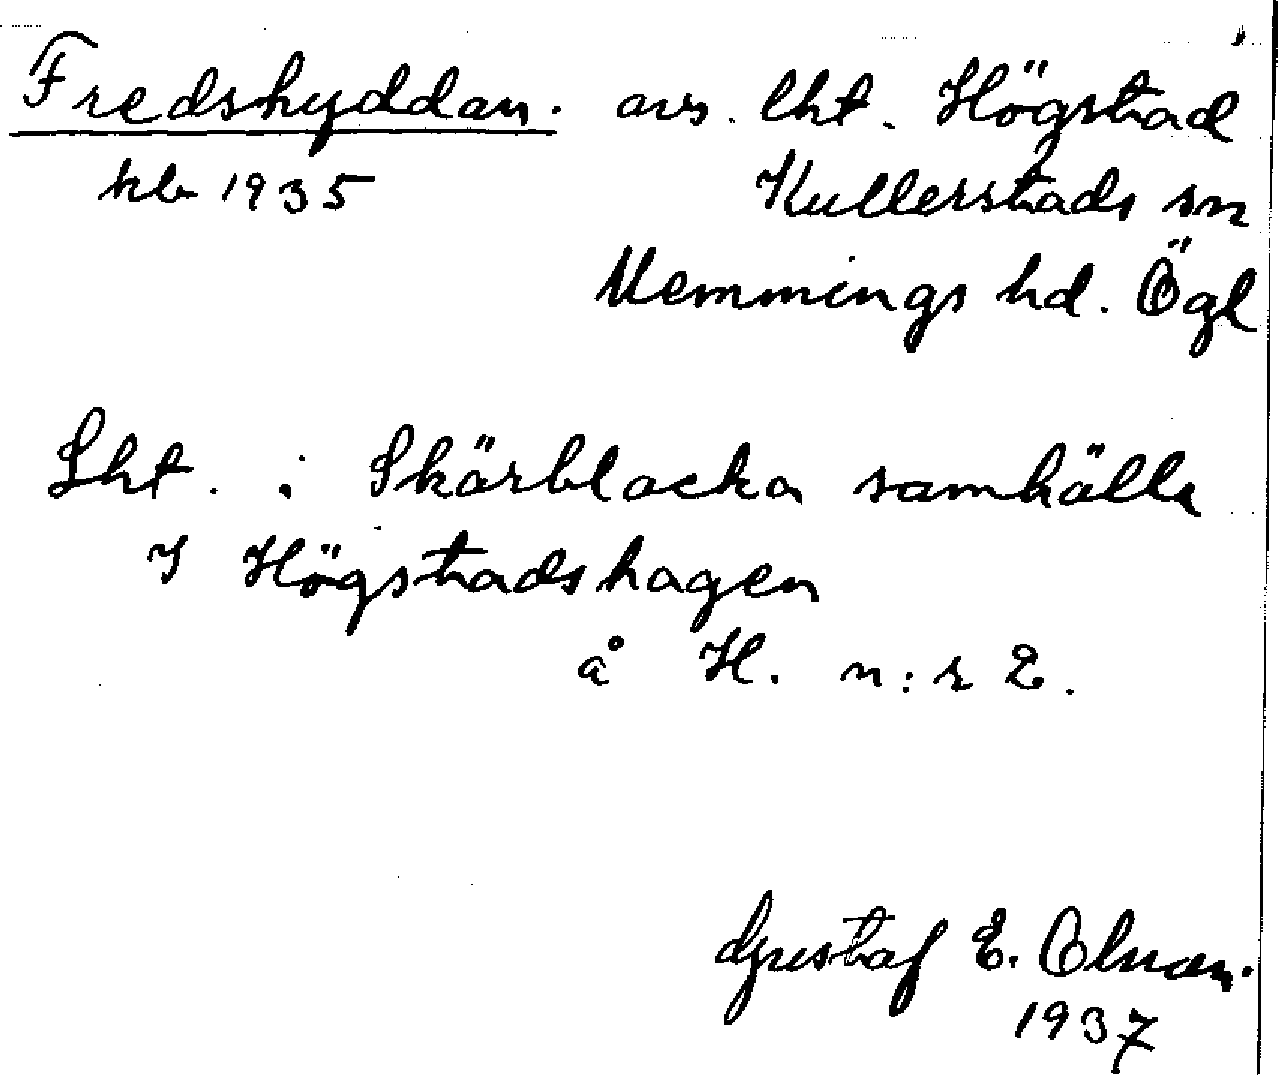 Fredshyddan. avs. lht. Högstad
kb 1935 Kullerstads sn
Memmings hd. Ögl
Lht. i Skärblacka samhälle
I Högstadshagen
å H. n:r 2.
Gustaf E. Olman.
1937